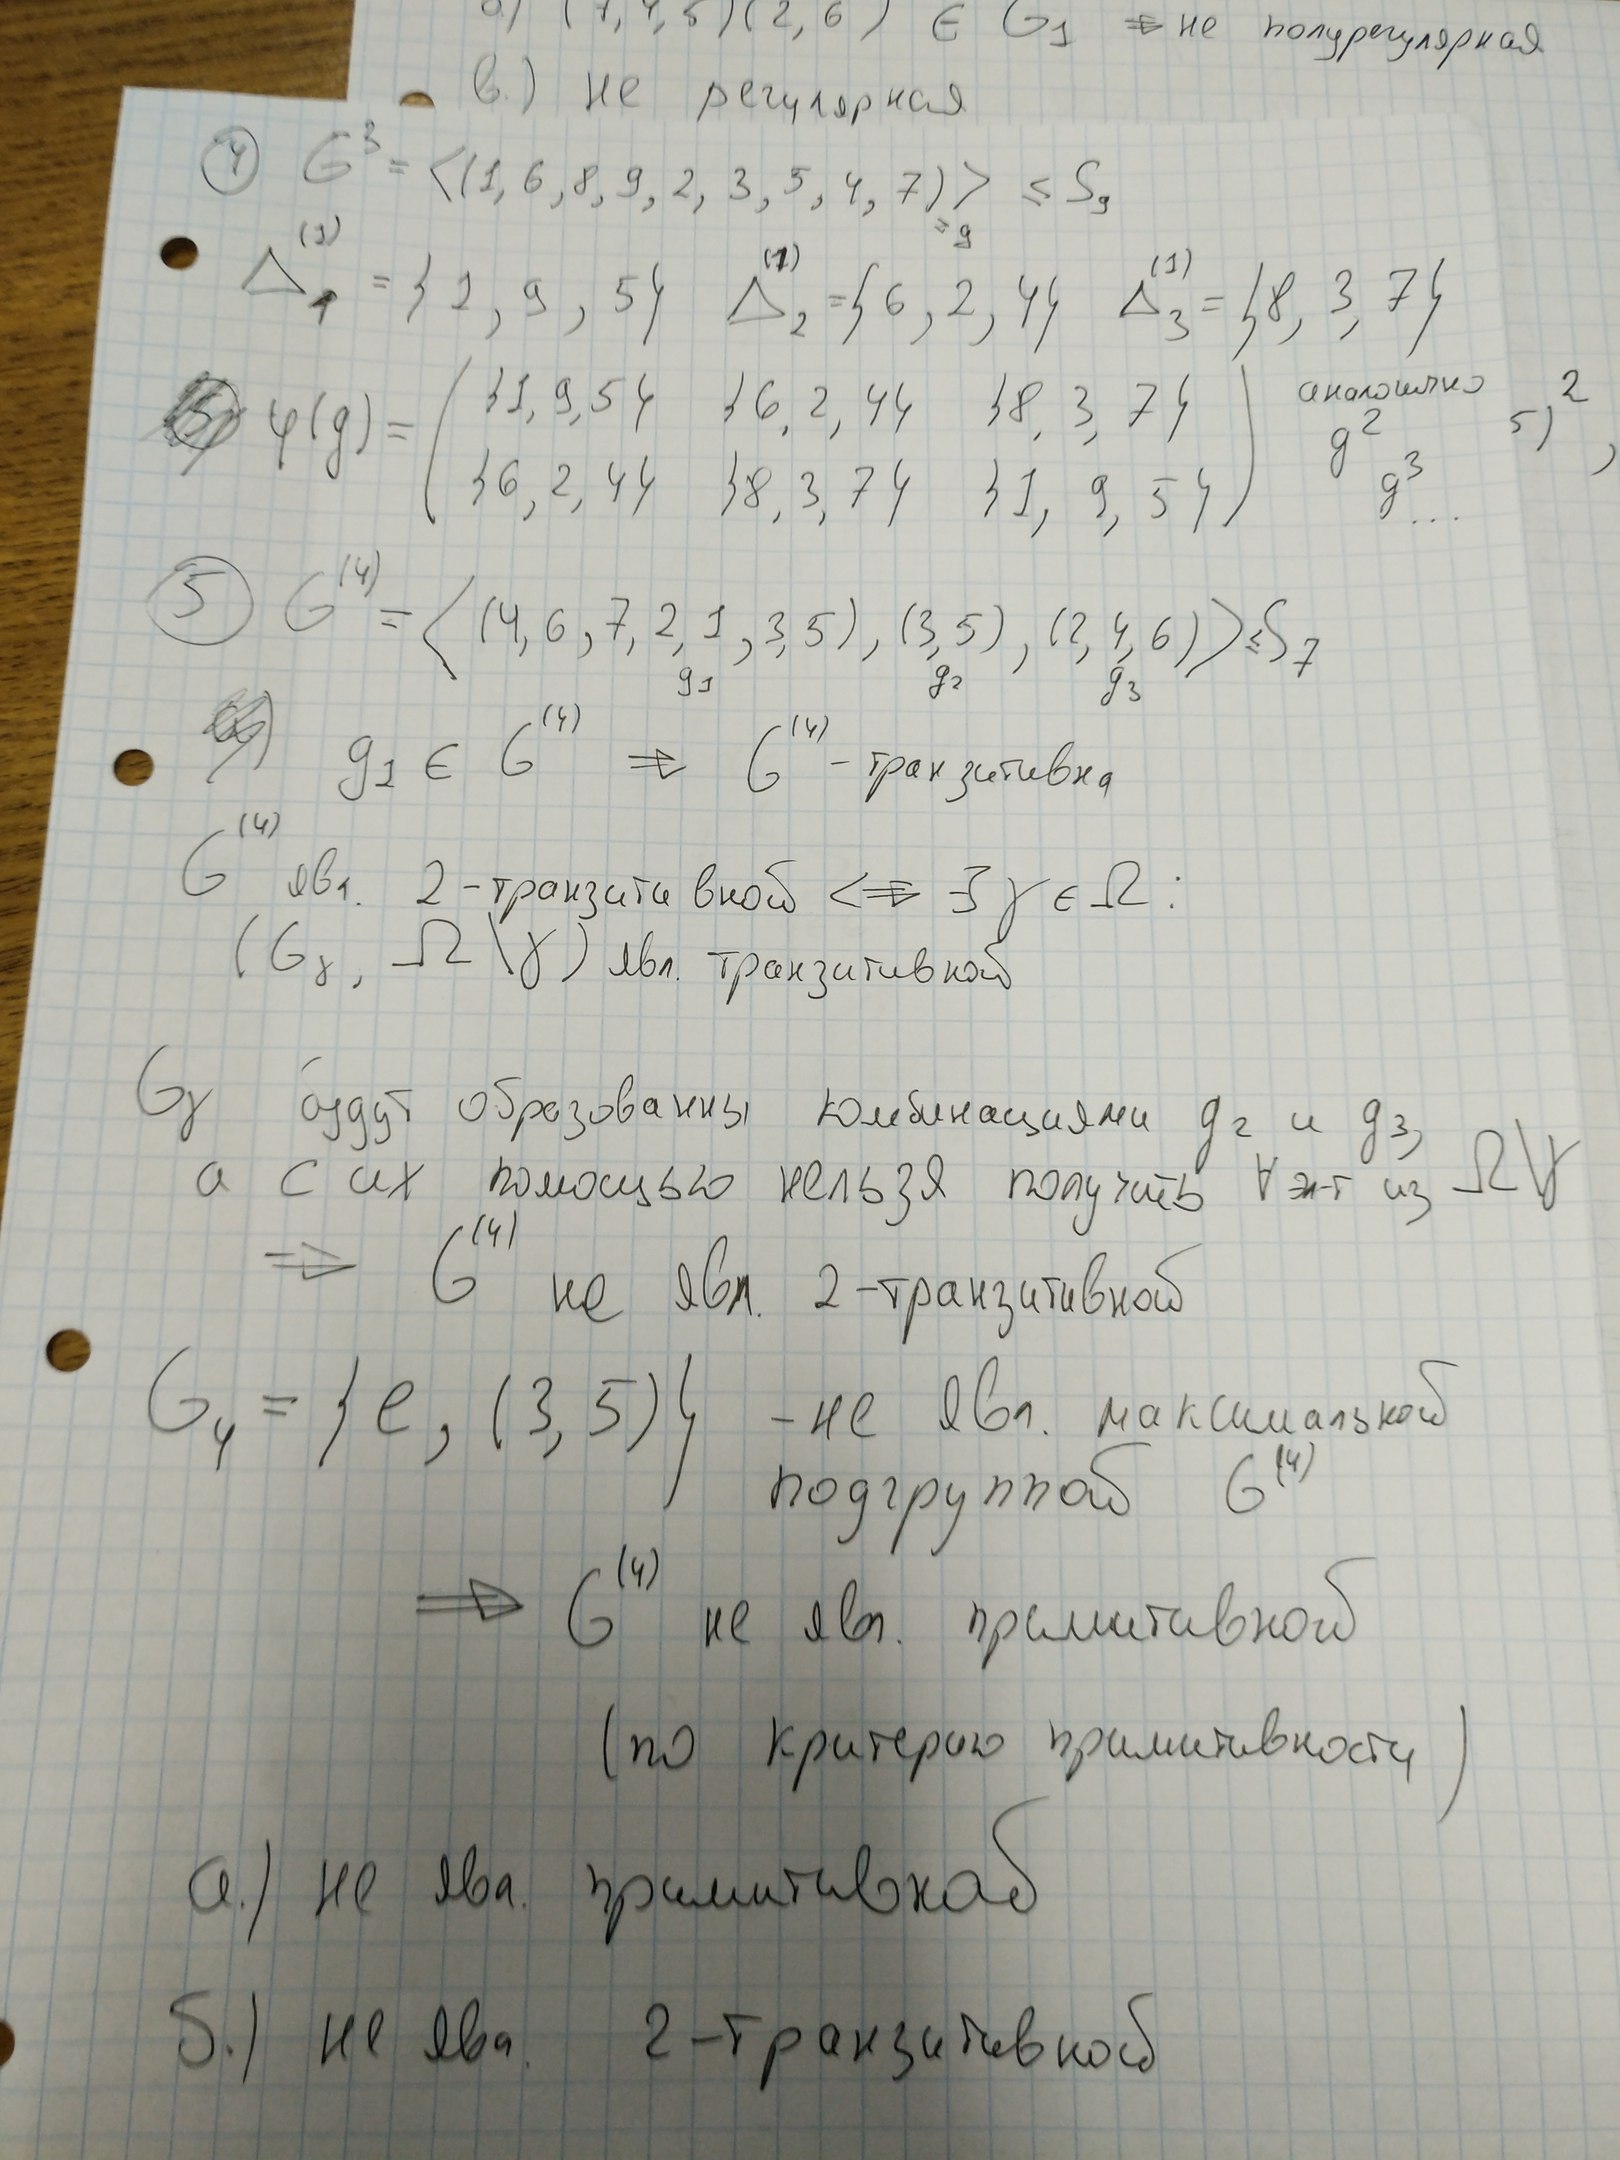 б) (1,4,5)(2,6) ∈ G1 ⇒ не полурегулярная
в.) не регулярная
4 G³ = <(1,6,8,9,2,3,5,4,7)> ≤ S9
= g
Δ1^(1) = {1, 9, 5} Δ2^(1) = {6, 2, 4} Δ3^(1) = {8, 3, 7}
φ(g) = ( {1,9,5} {6,2,4} {8,3,7} ) аналогично
{6,2,4} {8,3,7} {1,9,5} g² g³ ...
5),²,
5 G^(4) = <(4,6,7,2,1,3,5), (3,5), (2,4,6)> ≤ S7
g1 g2 g3
g1 ∈ G^(4) ⇒ G^(4) - транзитивна
G^(4) явл. 2-транзитивной <=> ∃ γ ∈ Ω :
(Gγ, Ω \ γ) явл. транзитивной
Gγ будут образованны комбинациями g2 и g3,
а с их помощью нельзя получить ∀ эл-т из Ω\γ
⇒ G^(4) не явл. 2-транзитивной
G4 = {e, (3,5)} - не явл. максимальной
подгруппой G^(4)
⇒ G^(4) не явл. примитивной
(по критерию примитивности)
а.) не явл. примитивной
б.) не явл. 2-транзитивной